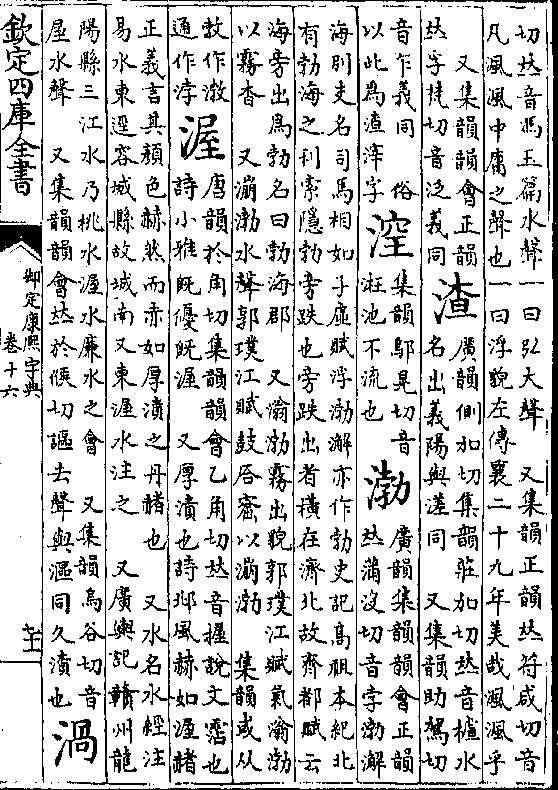 切𠀤音馮玉篇水聲一曰弘大聲 又集韻正韻𠀤符咸切音
凡渢渢中庸之聲也一曰浮貌左傳襄二十九年美哉渢渢乎
又集韻韻會正韻
𠀤孚梵切音泛義同
渣
廣韻側加切集韻莊加切𠀤音樝水
名出義陽與溠同 又集韻助駕切
音乍義同 俗
以此爲渣滓字
集韻鄔晃切音
汪池不流也
渤
廣韻集韻韻會正韻
𠀤蒲没切音孛渤澥
海别支名司馬相如子虛賦浮渤澥亦作勃史記髙祖本紀北
有勃海之利索隱勃旁跌也旁跌出者橫在濟北故齊都賦云
海旁出爲勃名曰勃海郡 又滃渤霧出貌郭璞江賦氣滃渤
以霧杳 又漰渤水聲郭璞江賦鼓窟以漰渤 集韻或从
敦作潡
通作浡
渥
唐韻於角切集韻韻會乙角切𠀤音握說文霑也
詩小雅既優既渥 又厚漬也詩邶風赫如渥赭
正義言其顔色赫然而赤如厚漬之丹赭也 又水名水經注
易水東逕容城縣故城南又東渥水注之 又廣輿記贛州龍
陽縣三江水乃桃水渥水廉水之會 又集韻烏谷切音
屋水聲 又集韻韻會𠀤於候切謳去聲與漚同久漬也
渦
欽定四庫全書
御定康熙字典
卷十六